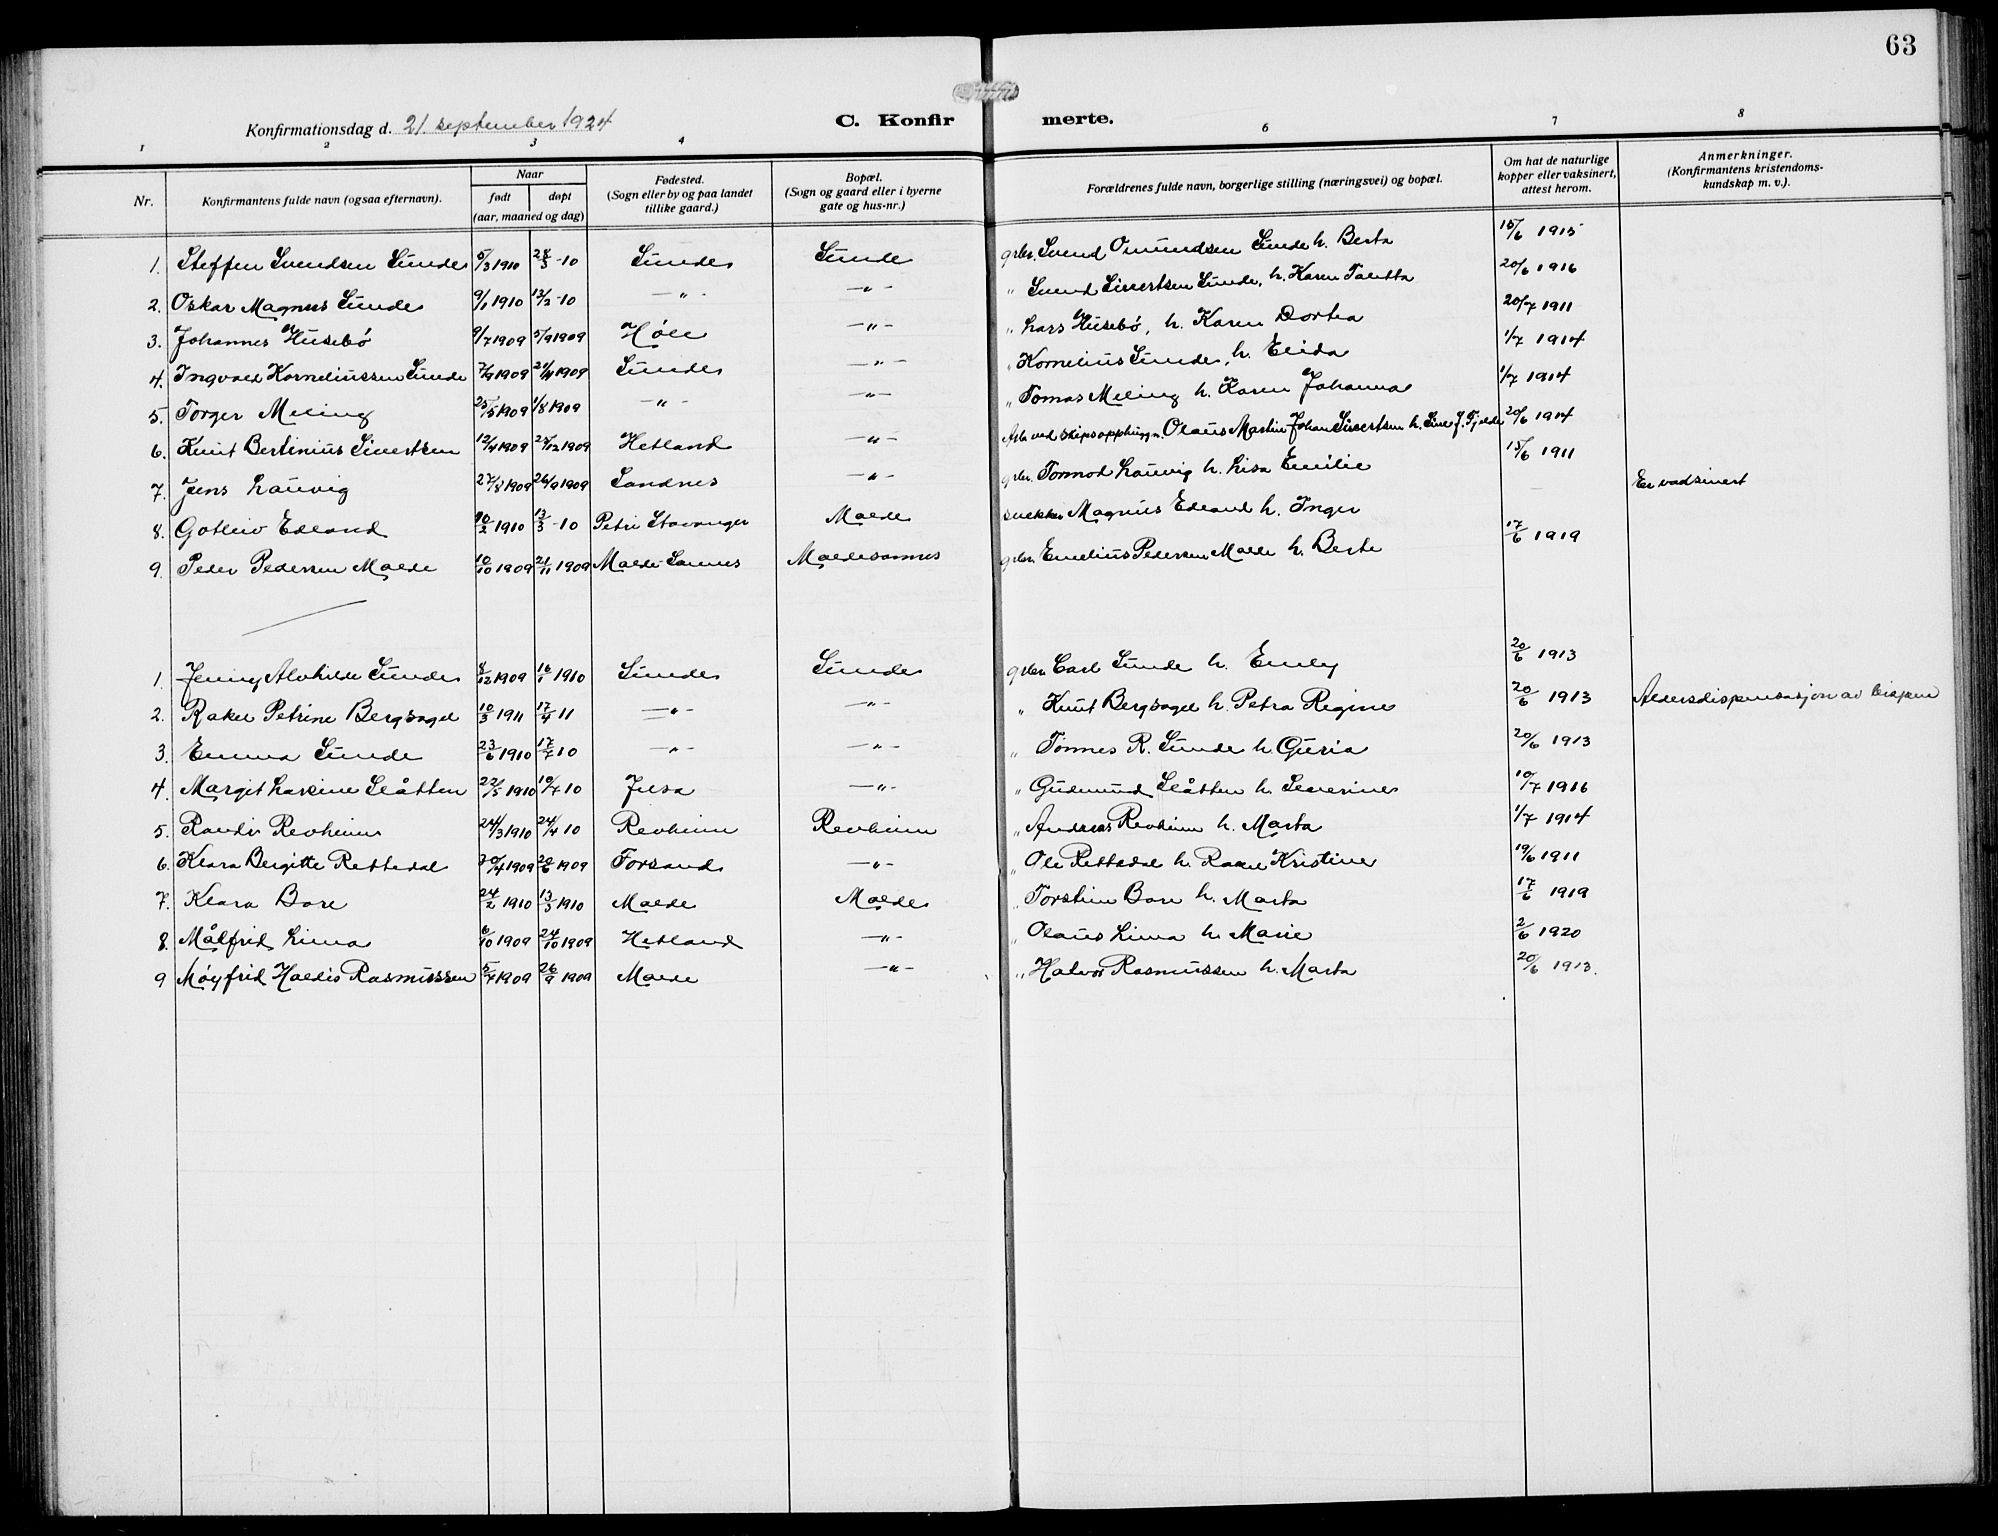 63
Konfirmationsdag d. 21. september 1924
C. Konfirmerte.
1 2 3 4 6 7 8
Nr. | Konfirmantens fulde navn (ogsaa efternavn). | Naar født døpt (aar, maaned og dag) | Fødested. (Sogn eller by og paa landet tillike gaard.) | Bopæl. (Sogn og gaard eller i byerne gate og hus-nr.) | Forældrenes fulde navn, borgerlige stilling (næringsvei) og bopæl. | Om hat de naturlige kopper eller vaksinert, attest herom. | Anmerkninger. (Konfirmantens kristendoms-kundskap m. v.).
1. Steffen Svendsen Sunde 5/3 1910 28/3 -10 Sunde Sunde grbr. Svend Omundsen Sunde h. Berta 15/6 1915
2. Oskar Magnus Sunde 9/1 1910 13/2 -10 -"- -"- " Svend Sivertsen Sunde, h. Karen Taletta 20/6 1916
3. Johannes Husebø 9/7 1909 5/9 1909 Høle -"- " Lars Husebø, h. Karen Dortea 20/7 1911
4. Ingvald Korneliussen Sunde 7/9 1909 21/11 1909 Sunde -"- " Kornelius Sunde, h. Elida 1/7 1914
5. Torger Meling 25/5 1909 1/8 1909 -"- -"- " Tomas Meling h. Karen Johanna 1/7 1914
6. Knut Bertinius Sivertsen 12/4 1909 25/12 1909 Hetland -"- Arb. ved skipsopphugn. Olaus Martin Johan Sivertsen h. Sine J. Fjelde 20/6 1914
7. Jens Lauvig 27/8 1909 26/9 1909 Sandnes -"- grbr. Tormod Lauvig h. Lisa Emilie 15/6 1911
8. Gotleiv Edland 10/2 1910 13/3 -10 Petri Stavanger Malde snekker Magnus Edland h. Inger — Er vadsinert
9. Peder Pedersen Malde 10/10 1909 21/11 1909 Malde-Sannes Maldesannes grbr. Emelius Pedersen Malde h. Berte 17/6 1919
1. Jenny Alvhilde Sunde 8/12 1909 16/1 1910 Sunde Sunde grbr. Carl Sunde h. Emly 20/6 1913
2. Rakel Petrine Bergsagel 10/3 1911 17/4 11 -"- -"- " Knut Bergsagel h. Petra Regine 20/6 1913 Aldersdispensasjon av biskpen
3. Emma Sunde 23/6 1910 17/7 10 -"- -"- " Tønnes R. Sunde h Guria 20/6 1913
4. Margit Laxine Slåtten 22/5 1910 10/7 10 Jelsa -"- " Gudmund Slåtten h. Severine 10/7 1916
5. Randi Revheim 24/3 1910 24/4 10 Revheim Revheim " Andreas Revheim h. Marta 1/7 1914
6. Klara Bergitte Rettedal 30/4 1909 20/6 1909 Forsand -"- " Ole Rettedal h. Rakel Kristine 19/6 1911
7. Klara Bore 24/2 1910 13/3 1910 Malde Malde " Torstein Bore h. Marta 17/6 1919
8. Målfrid Lima 6/10 1909 24/10 1909 Hetland -"- " Olaus Lima h. Marie 2/6 1920
9 Møyfrid Haldis Rasmussen 5/7 1909 26/9 1909 Malde -"- " Halvor Rasmussen h. Marta 20/6 1913.